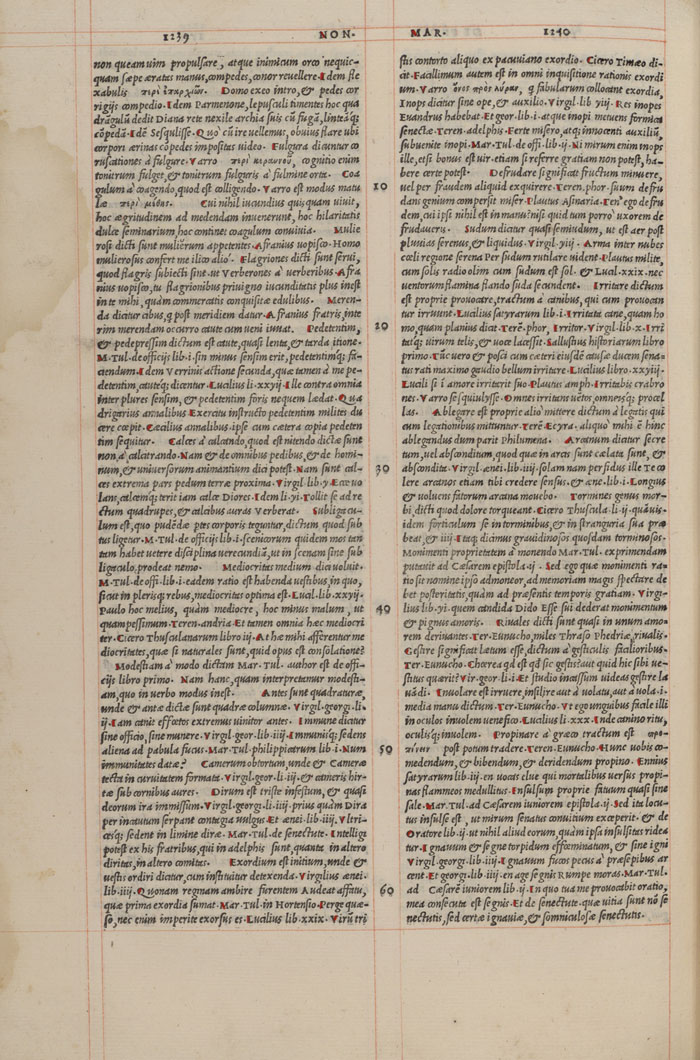 1239 NON.
non queam uim propulsare, atque inimicum orco nequic-
quam sæpe æratas manus, compedes, conor reuellere. Idem fle
xabulis περὶ ἐπαρχιῶν. Domo exeo intro, & pedes cor
rigijs compedio. Idem Parmenone, lepusculi timentes hoc qua
drãgulũ dedit Diana rete nexile archia suis cũ fugã, linteãq;
cõpedã. Idẽ Sesqulisse. Quo cũ ire uellemus, obuius flare ubi
corpori ærinas cõpedes impositas uideo. Fulgura dicuntur co
ruscationes à fulgure. Varro περὶ κεραυνοῦ, cognitio enim
tonitrum fulget, & tonitrum fulguris à fulmine orta. Coa
gulum à coagendo, quod est colligendo. Varro est modus matu
læ περὶ μέθης. Cui nihil iucundius quisquam uiuit,
hoc ægritudinem ad medendam inuenerunt, hoc hilaritatis
dulce seminarium, hoc continet coagulum conuiuia. Mulie
rosi dicti sunt mulierum appetentes. Afranius uopisco. Homo
mulierosus confert me ilico aliò. Flagriones dicti sunt serui,
quod flagris subiecti sint. ut Verberones à uerberibus. Afra
nius uopisco, tu flagrionibus priuigno iucunditatis plus inest
in te mihi, quàm commercatis conquisitæ edulibus. Meren-
da dicitur cibus, q̃ post meridiem datur. Afranius fratris, inte
rim merendam occurro caute cum ueni iuuat. Pedetentim,
& pedepressim dictum est caute, quasi lenta, & tarda itione.
M.Tul.de officijs lib.i.sin minus sensim erit, pedetentimq; fa-
ciendum. Idem Verrinis actione secunda, quæ tamen à me pe-
detentim, cauteq; dicentur. Lucilius li.xxyij. Ille contra omnia
inter plures sensim, & pedetentim foris nequem lædat. Qua
drigarius annalibus Exercitu instructo pedetentim milites du
cere cœpit. Cæcilius annalibus. ipse cum cætera copia pedeten
tim sequitur. Calces à calcando, quod est nitendo dictæ sunt
non, à calcitrando. Nam & de omnibus pedibus, & de homi-
num, & uniuersorum animantium dici potest. Nam sunt cal-
ces extrema pars pedum terræ proxima. Virgil.lib.y. Ecce uo
lans, calcemq; terit iam calce Diores. Idem li.yi. Tollit se ad re
ctum quadrupes, & calcibus auras Verberat. Subligacu-
lum est, quo pudẽdæ ptes corporis teguntur, dictum quod sub
tus ligetur. M.Tul.de officijs lib.i.scenicorum quidem mos tan
tum habet uetere disciplina uerecundiã, ut in scenam sine sub
ligaculo, prodeat nemo. Mediocritas medium dici uoluit.
M.Tul.de offi.lib.i.eadem ratio est habenda uestibus in quo,
sicut in plerisq; rebus, mediocritas optima est. Lucil.lib.xxyij.
Paulo hoc melius, quàm mediocre, hoc minus malum, ut
quampessimum. Teren.andria. Et tamen omnia hæc mediocri
ter. Cicero Thusculanarum libro iij. At hæ mihi afferentur me
diocritates, quæ si naturales sunt, quid opus est consolatione?
Modestiam à modo dictam Mar.Tul. author est de offi-
cijs libro primo. Nam hanc, quam interpretamur modesti-
am, quo in uerbo modus inest. Antes sunt quadraturæ,
unde & antæ dictæ sunt quadræ columnæ. Virgil.georgi.li-
ij. Iam canit effœtos extremus uinitor antes. Immune dicitur
sine officio, sine munere. Virgil.geor.lib.iij. Immunisq; sedens
aliena ad pabula fucus. Mar.Tul.philippicarum lib.i. Num
immunitates datæ? Camerum obtortum, unde & Cameræ
tecta in curuitatem formata. Virgil.geor.li.iij. & cameris hir-
tæ sub cornibus aures. Dirum est triste infestum, & quasi
deorum ira immissum. Virgil.georgi.li.iij. prius quàm Dira
per incautum serpant contagia uulgus. Et ænei.lib.iiij. Vltri-
cesq; sedent in limine diræ. Mar.Tul.de senectute. Intelligi
potest ex his fratribus, qui in adelphis sunt, quanta in altero
diritas, in altero comitas. Exordium est initium, unde &
uestis ordiri dicitur, cum instituitur detexenda. Virgilius ænei.
lib.iiij. Quonam reginam ambire furentem Audeat affatu,
quæ prima exordia sumat. Mar.Tul.in Hortensio. Perge quæ-
so, nec enim imperite exorsus es. Lucilius lib.xxix. Verũ tri
10
20
30
40
50
60
MAR. 1240
stis contorto aliquo ex pacuuiano exordio. Cicero Timæo di-
cit. Facillimum autem est in omni inquisitione rationis exordi
um. Varro ὄνος πρὸς λύραν, q̃ fabularum collocant exordia,
Inops dicitur sine ope, & auxilio. Virgil.lib yiij. Res inopes
Euandrus habebat. Et geor.lib.i. atque inopi metuens formica
senectæ. Teren.adelphis. Ferte misero, atq; innocenti auxiliũ,
subuenite inopi. Mar.Tul.de offi.lib.ij. Ni mirum enim inops
ille, etsi bonus est uir. etiam si referre gratiam non potest, ha-
bere certe potest. Defrudare significat fructum minuere,
uel per fraudem aliquid exquirere. Teren.phor. suum defru
dans genium compersit miser. Plautus Asinaria. Ten' ego defru
dem, cui ipsi nihil est in manu? nisi quid tum porrò uxorem de
frudaueris. Sudum dicitur quasi semiudum, ut est aer post
pluuias serenus, & liquidus. Virgil.yiij. Arma inter nubes
cœli regione serena Per sudum rutilare uident. Plautus milite,
cum solis radio olim cum sudum est sol. & Lucil.xxix. nec
uentorum flamina flando suda secundent. Irritare dictum
est proprie prouocare, tractum à canibus, qui cum prouocan
tur irriunt. Lucilius satyrarum lib.i. Irritata cane, quam ho
mo, quam planius dicat. Terẽ.phor, Irritor. Virgil.lib.x. Irri
tatq; uirum telis, & uoce lacessit. Sallustius historiarum libro
primo. Tũc uero & posca cum cæteri eiusdẽ causæ ducem sena-
tus rati maximo gaudio bellum irritare. Lucilius libro.xxyiij.
Lucili si ĩ amore irritarit suo. Plautus amph. Irritabis crabro
nes. Varro sesquiulysse. Omnes irritans uẽtos, omnesq; procel
las. Ablegare est proprie aliò mittere dictum à legatis qui
cum legationibus mittuntur. Terẽ. Ecyra. aliquo mihi ẽ hinc
ablegandus dum parit Philumena. Arcanum dicitur secre
tum, uel absconditum, quod quæ in arcis sunt cælata sunt, &
abscondita. Virgil.ænei.lib.iiij. solam nam perfidus ille Te co
lere arcanos etiam tibi credere sensus. & æne.lib.i. Longius
& uoluens fatorum arcana mouebo. Tormines genus mor-
bi, dicti quod dolore torqueant. Cicero Thuscula.li.ij. quãuis
idem forticulum se in torminibus, & in stranguria sua præ
beat, & iiij. Itaq; dicimus grauidinosos quosdam torminosos.
Monimenti proprietatem à monendo Mar.Tul. exprimendam
putauit ad Cæsarem epistola.ij. Sed ego quæ monimenti ra-
tio sit nomine ipso admoneor, ad memoriam magis spectare de
bet posteritatis, quàm ad præsentis temporis gratiam. Virgi-
lius lib.yi. quem candida Dido Esse sui dederat monimentum
& pignus amoris. Riuales dicti sunt quasi in unum amo-
rem deriuantes. Ter.Eunucho, miles Thraso Phedriæ, riualis.
Gestire significat lætum esse, dictum à gesticulis facilioribus.
Ter.Eunucho. Chærea qd est qd sic gestis? aut quid hic sibi ue-
stitus quærit? Vir.geor.li.i. Et studio incassum uideas gestire la
uãdi. Inuolare est irruere, insilire aut à uolatu, aut à uola.i.
media manu dictum. Ter.Eunucho. Vt ego unguibus facile illi
in oculos inuolem uenefico. Lucilius li.xxx. Inde canino ritu,
oculisq; inuolem. Propinare à græco tractum est προ-
πίνειν post potum tradere. Teren.Eunucho. Hunc uobis co-
medendum, & bibendum, & deridendum propino. Ennius
satyrarum lib.iij. en uates clue qui mortalibus uersus propi-
nas flammeos medullitus. Ensulsum proprie fatuum quasi sine
sale. Mar.Tul.ad Cæsarem iuniorem epistola.ij. Sed ita locu-
tus insulse est, ut mirum senatus conuitium exceperit. & de
Oratore lib.ij. ut nihil aliud eorum, quàm ipsa insulsitas ridea
tur. Ignauum & segne torpidum effœminatum, & sine igni
Virgil.georgi.lib.iiij. Ignauum fucos pecus à præsepibus ar
cent. Et georgi.lib.iij. en age segnis Rumpe moras. Mar.Tul.
ad Cæsarẽ iuniorem lib.ij. In quo tua me prouocabit oratio,
mea consecuta est segnis. Et de senectute. quæ uitia sunt nõ se
nectutis, sed certæ ignauiæ, & somniculosæ senectutis.